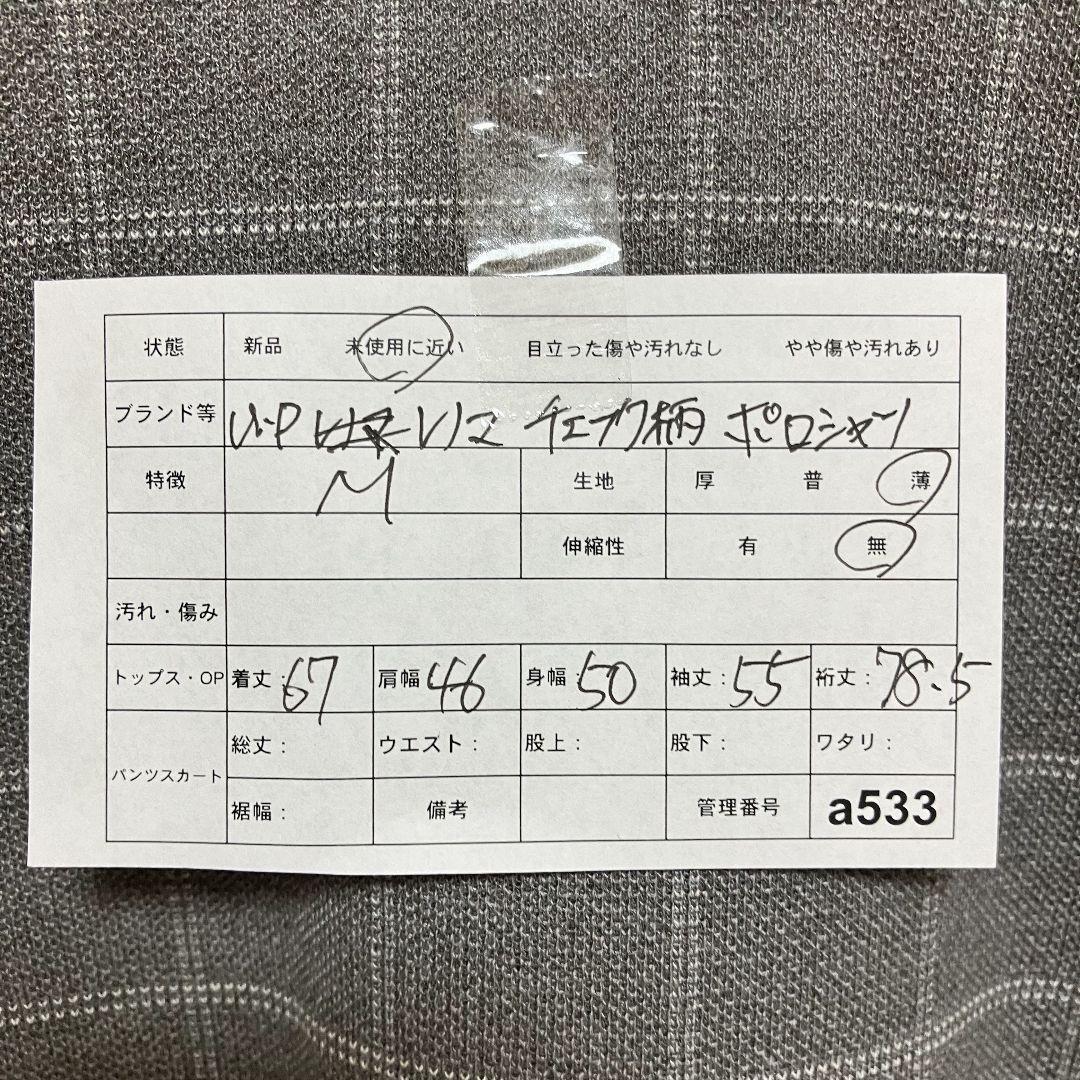 状態 新品 未使用に近い 目立った傷や汚れなし やや傷や汚れあり
ブランド等 チェック柄 ポロシャツ
特徴 M 生地 厚 普 薄
伸縮性 有 無
汚れ・傷み
トップス・OP 着丈:67 肩幅 46 身幅:50 袖丈:55 裄丈:78.5
パンツスカート 総丈: ウエスト: 股上: 股下: ワタリ:
裾幅: 備考 管理番号 a533